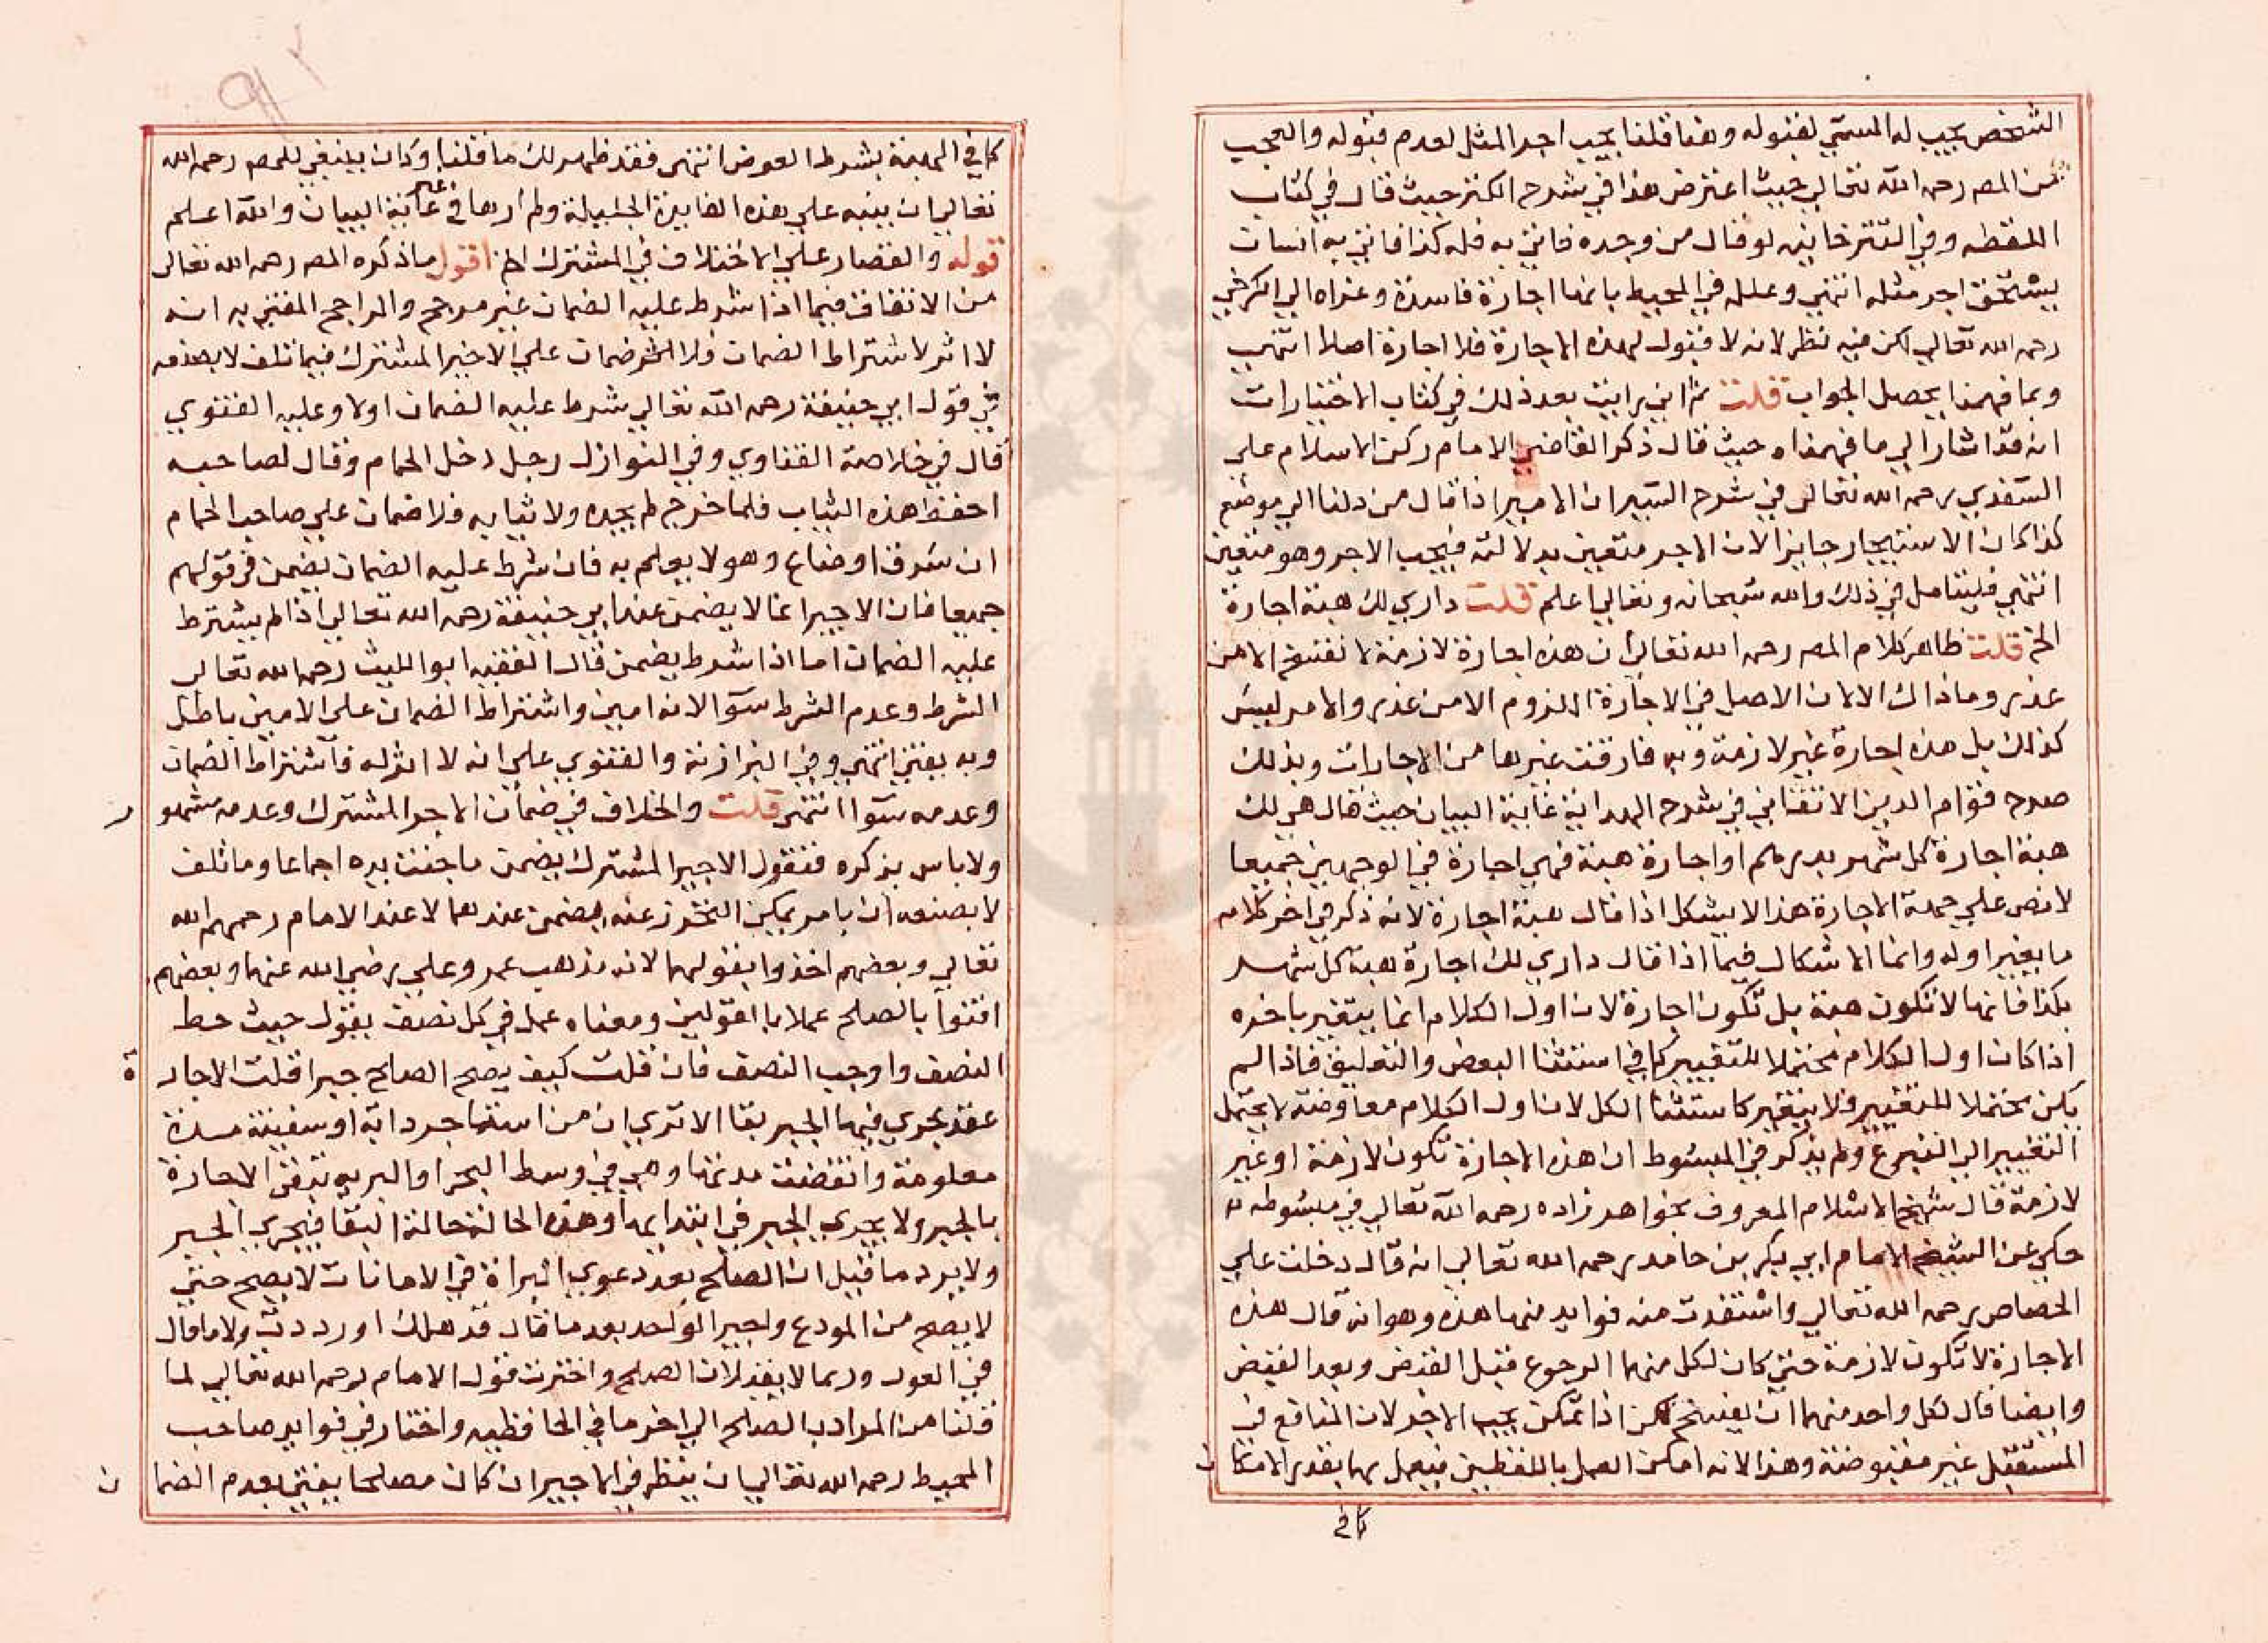 الشخص يجب له المسمي لقبوله وهنا قلنا يجب اجر المثل لعدم قبوله والعجب
من المصـ رحمه الله تعالي حيث اعترض هذا في شرح الكنز حيث قال في كتاب
اللقطه وفي التترخانيه لو قال من وجده فاني به فله كذا فاتي به انسان
يستحق اجر مثله انتهي وعلله في المحيط بانها اجارة فاسدة وعزاه الي الكرخي
رحمه الله تعالي لكن فيه نظر لانه لا قبول لهذه الاجارة فلا اجارة اصلا انتهي
وبما فهمنا يحصل الجواب قلت ثم اني رايت بعد ذلك في كتاب الاختيارات
انه قد اشار الي ما فهمناه حيث قال ذكر القاضي الامام ركن الاسلام علي
السغدي رحمه الله تعالي في شرح السير ان الامير اذا قال من دلنا الي موضع
كذا كان الاستيجار جايزا لان الاجر متعين بدلالته فيجب الاجر وهو متعين
انتهي فليتامل في ذلك والله سبحانه وتعالي اعلم قلت داري لك هبة اجارة
الخ قلت ظاهر كلام المصـ رحمه الله تعالي ان هذه اجارة لازمة لا تفسخ الا من
عذر وما ذاك الا لان الاصل في الاجارة اللزوم الا من عذر والامر ليس
كذلك بل هذه اجارة غير لازمة وبه فارقت غيرها من الاجارات وبذلك
صرح قوام الدين الاتقاني في شرح الهداية غاية البيان حيث قال هي لك
هبة اجارة كل شهر بدرهم او اجارة هبة فهي اجارة في الوجهين جميعا
لانص علي جملة الاجارة هذا لا يشكل اذا قال هبة اجارة لانه ذكر في اخر كلامه
ما يغير اوله وانما الاشكال فيما اذا قال داري لك اجارة هبة كل شهر
بكذا فانها لا تكون هبة بل تكون اجارة لان اول الكلام انما يتغير باخره
اذا كان اول الكلام محتملا للتغيير كما في استثنا البعض والتعليق فاذا لم
يكن محتملا للتغيير فلا يتغير كاستثنا الكل لان اول الكلام معاوضة لا يحتمل
التغيير الي التبرع ولم يذكر في المبسوط ان هذه الاجارة تكون لازمة او غير
لازمة قال شيخ الاسلام المعروف بخواهر زاده رحمه الله تعالي في مبسوطه
حكي عن الشيخ الامام ابي بكر بن حامد رحمه الله تعالي انه قال دخلت علي
الخصاص رحمه الله تعالي واستفدت منه فوايد منها هذه وهو انه قال هذه
الاجارة لا تكون لازمة حتي كان لكل منهما الرجوع قبل القبض وبعد القبض
وايضا قال لكل واحد منهما ان يفسخ لكن اذا تمكن يجب الاجر لان المنافع في
المستقبل غير مقبوضة وهذا لانه امكن العمل باللفظين فيعمل بهما بقدر الامكا ن
كما في
كما في الهبة بشرط العوض انتهي فقد ظهر لك ما قلنا وكان ينبغي للمصـ رحمه الله
تعالي ان ينبه علي هذه الفايدة الجليلة ولم ارها في غير غاية البيان والله اعلم
قوله والقصار علي الاختلاف في المشترك الخ اقول ما ذكره المصـ رحمه الله تعالي
من الاتفاق فيما اذا شرط عليه الضمان غير مرجح والراجح المفتي به انه
لا اثر لاشتراط الضمان فلا ضمان علي الاجير المشترك فيما تلف لا بصنعه
في قول ابي حنيفة رحمه الله تعالي شرط عليه الضمان اولا وعليه الفتوي
قال في خلاصة الفتاوي وفي النوازل رجل دخل الحمام وقال لصاحبه
احفظ هذه الثياب فلما خرج لم يجده ولا ثيابه فلا ضمان علي صاحب الحمام
ان سرق او ضاع وهو لا يعلم به فان شرط عليه الضمان يضمن في قولهم
جميعا فان الاجير انما لا يضمن عند ابي حنيفة رحمه الله تعالي اذا لم يشترط
عليه الضمان اما اذا شرط يضمن قال الفقيه ابو الليث رحمه الله تعالي
الشرط وعدم الشرط سوآ لانه امين واشتراط الضمان علي الامين باطل
وبه يفتي انتهي وفي البزازية والفتوي علي انه لا اثر له فاشتراط الضمان
وعدمه سوآ انتهي قلت والخلاف في ضمان الاجر المشترك وعدمه مشهو ر
ولا باس بذكره فنقول الاجير المشترك يضمن ما جنت يده اجماعا وما تلف
لا بصنعه ان بامر يمكن التحرز عنه يضمن عندهما لا عند الامام رحمهم الله
تعالي وبعضهم اخذوا بقولهما لانه مذهب عمر وعلي رضي الله عنهما وبعضهم
افتوا بالصلح عملا بالقولين ومعناه عمل في كل نصف بقول حيث حط
النصف واوجب النصف فان قلت كيف يصح الصلح جبرا قلت الاجار ة
عقد يجري فيها الجبر بقا الا تري ان من استاجر دابة او سفينة مدة
معلومة وانقضت مدتها وهي في وسط البحر او البرية تبقي الاجارة
بالجبر ولا يجري الجبر في ابتدايها وهذه الحالة حالة البقا فيجري الجبر
ولا يرد ما قيل ان الصلح بعد دعوي البراة في الامانات لا يصح حتي
لا يصح من المودع واجير الواحد بعد ما قال قد هلك او رددت ولا ما قال
في العود وربما لا يقبلان الصلح واخترت قول الامام رحمه الله تعالي لما
قلنا من المراد بالصلح الي اخر ما في الحافظيه واختار في فوايد صاحب
المحيط رحمه الله تعالي ان ينظر في الاجير ان كان مصلحا يفتي بعدم الضما ن